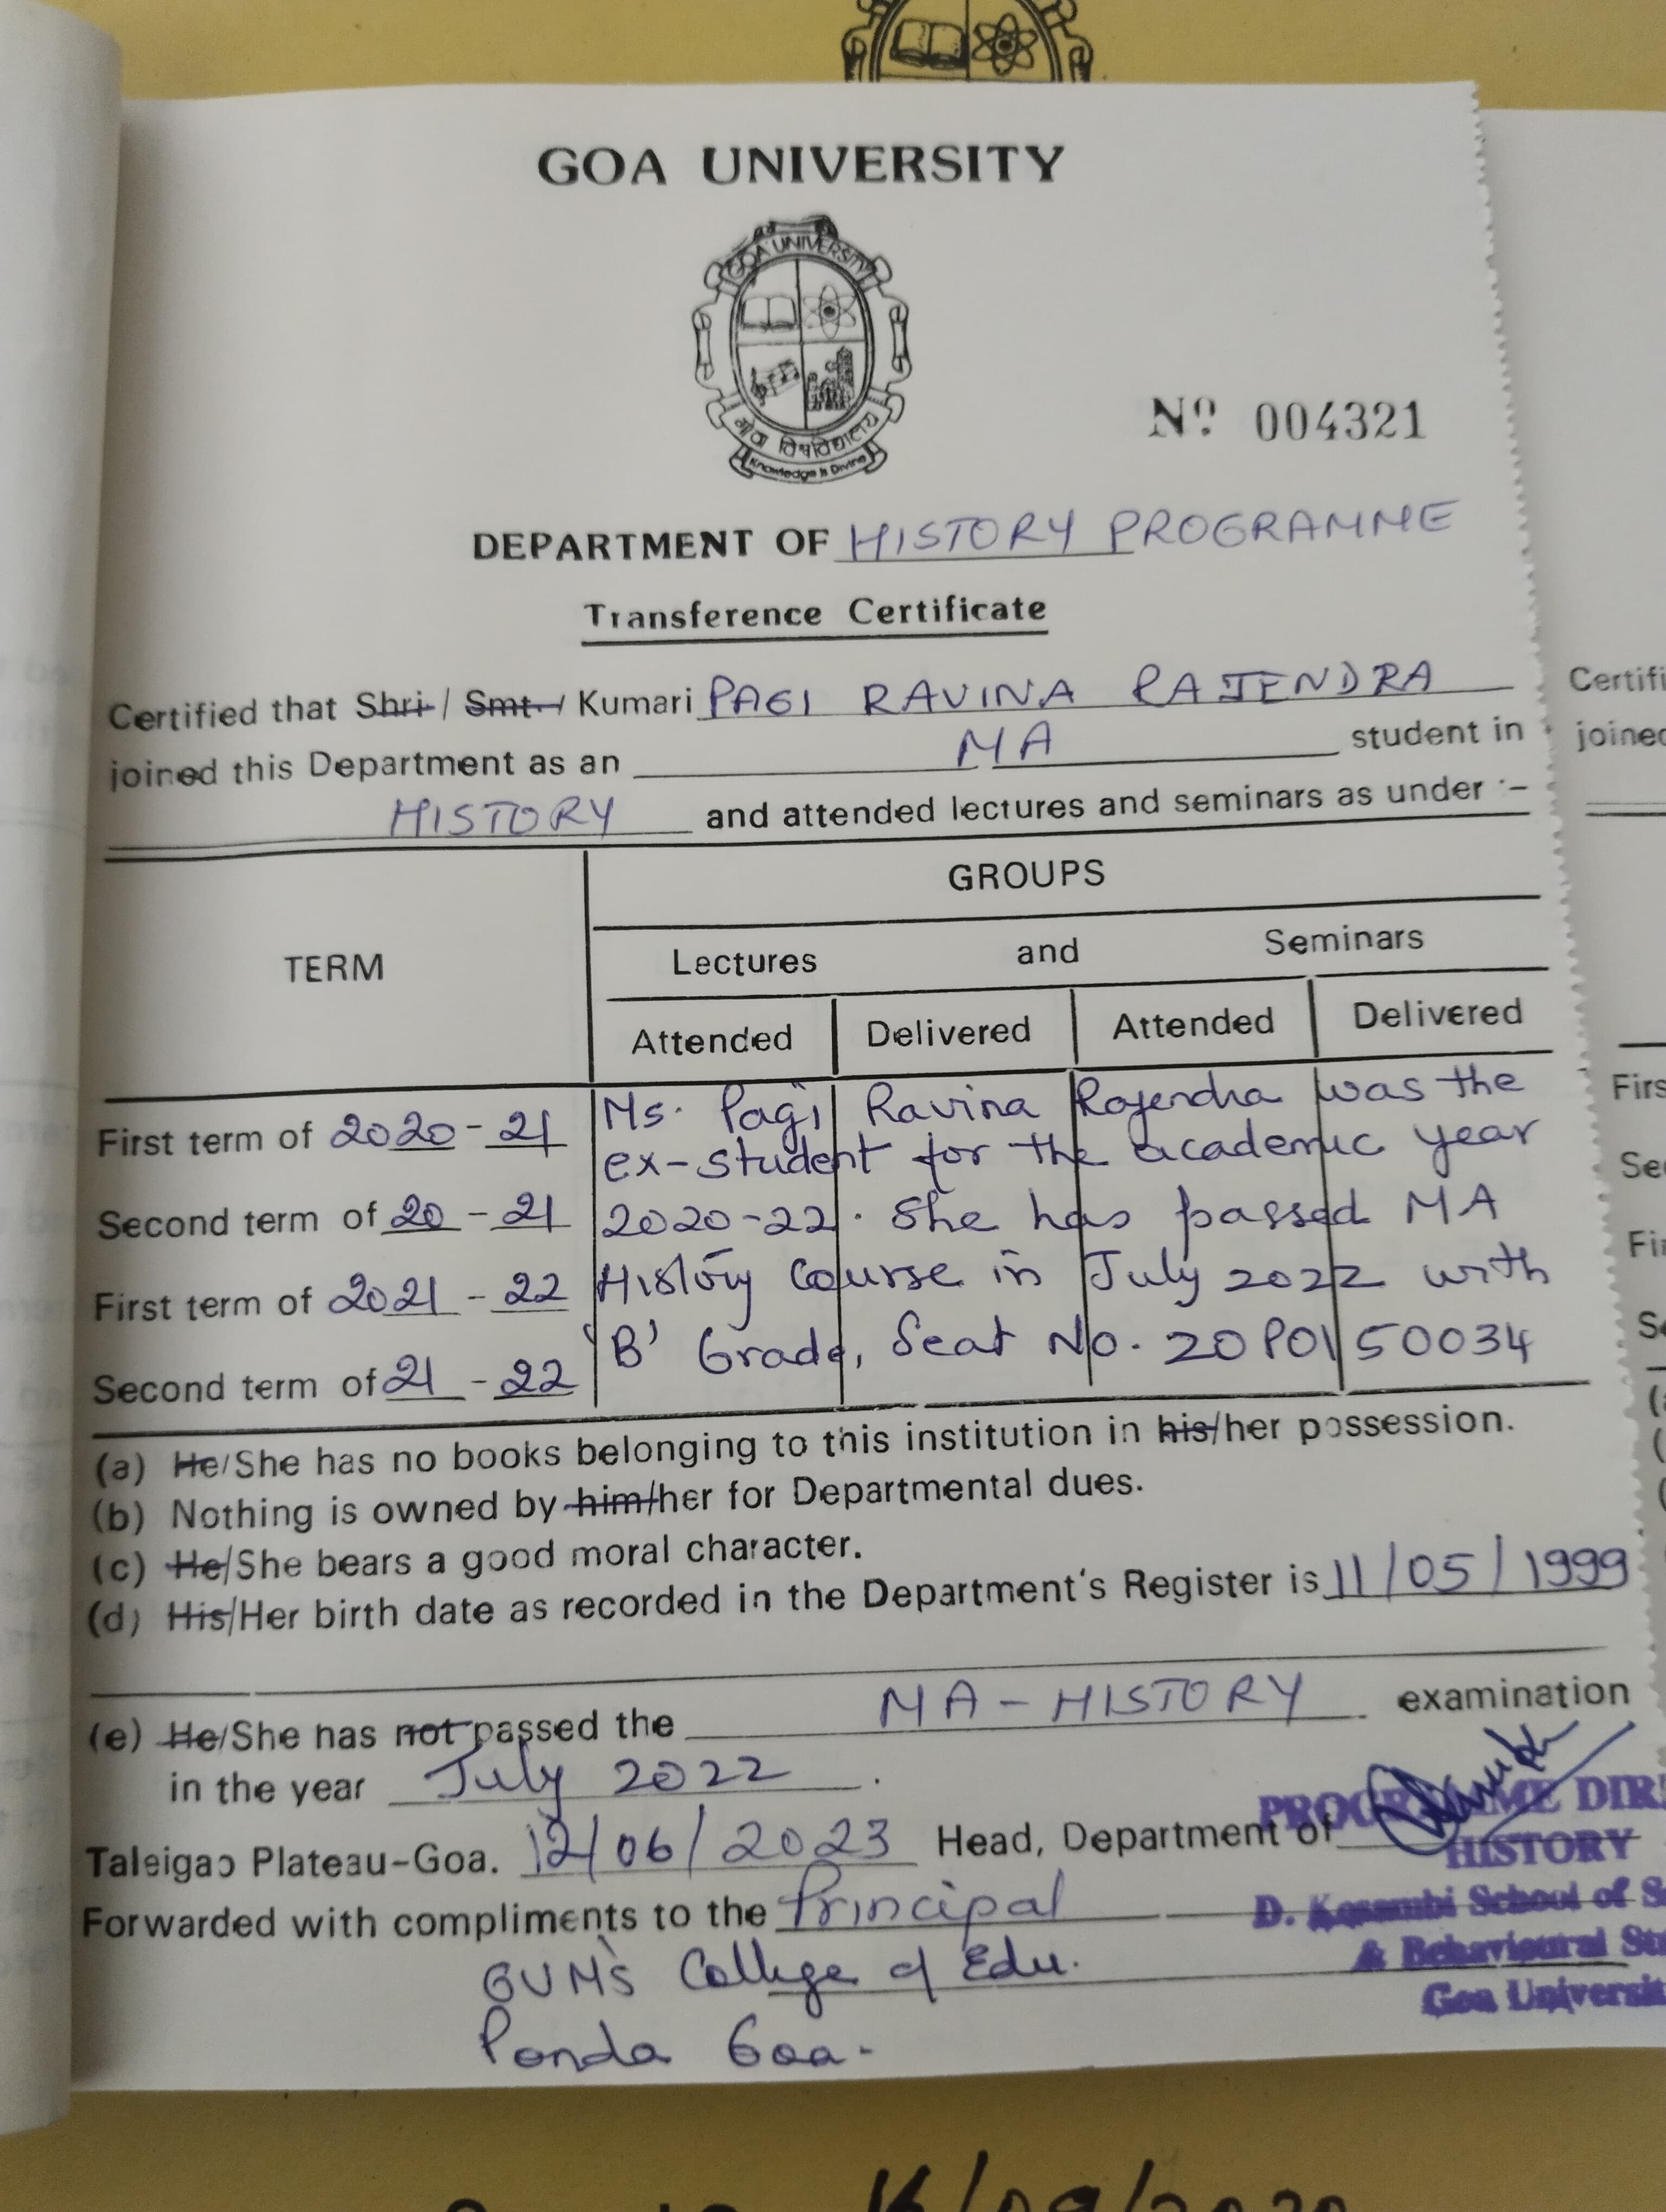 GOA UNIVERSITY
GOA UNIVERSITY
गोंवा विश्वविद्यालय
Knowledge is Divine
Nº 004321
DEPARTMENT OF HISTORY PROGRAMME
Transference Certificate
Certified that Shri / Smt. / Kumari PAGI RAVINA RAJENDRA
joined this Department as an MA student in
HISTORY and attended lectures and seminars as under :-
TERM
GROUPS
Lectures and Seminars
Attended Delivered Attended Delivered
First term of 2020-21 Ms. Pagi Ravina Rajendra was the
ex-student for the academic year
Second term of 20-21 2020-22. She has passed MA
First term of 2021-22 History Course in July 2022 with
Second term of 21-22 'B' Grade, Seat No. 20P0150034
(a) He/She has no books belonging to this institution in his/her possession.
(b) Nothing is owned by him/her for Departmental dues.
(c) He/She bears a good moral character.
(d) His/Her birth date as recorded in the Department's Register is 11/05/1999
(e) He/She has not passed the MA-HISTORY examination
in the year July 2022.
PROGRAMME DIR
Taleigao Plateau-Goa. 12/06/2023 Head, Department of
HISTORY
Forwarded with compliments to the Principal
D. Kosambi School of S
GVM's College of Edu.
& Behavioural Stu
Goa Universit
Ponda Goa.
Certifi
joined
Firs
Sec
Fir
Se
16/09/2020